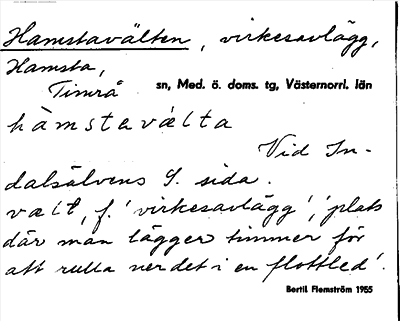 Hamstavälten, virkesavlägg,
Hamsta,
Timrå sn, Med. ö. doms. tg, Västernorrl. län
hàmstavæ̀lta
Vid In-
dalsälvens S. sida.
vælt, f. 'virkesavlägg', 'plats
där man lägger timmer för
att rulla ner det i en flottled'.
Bertil Flemström 1955